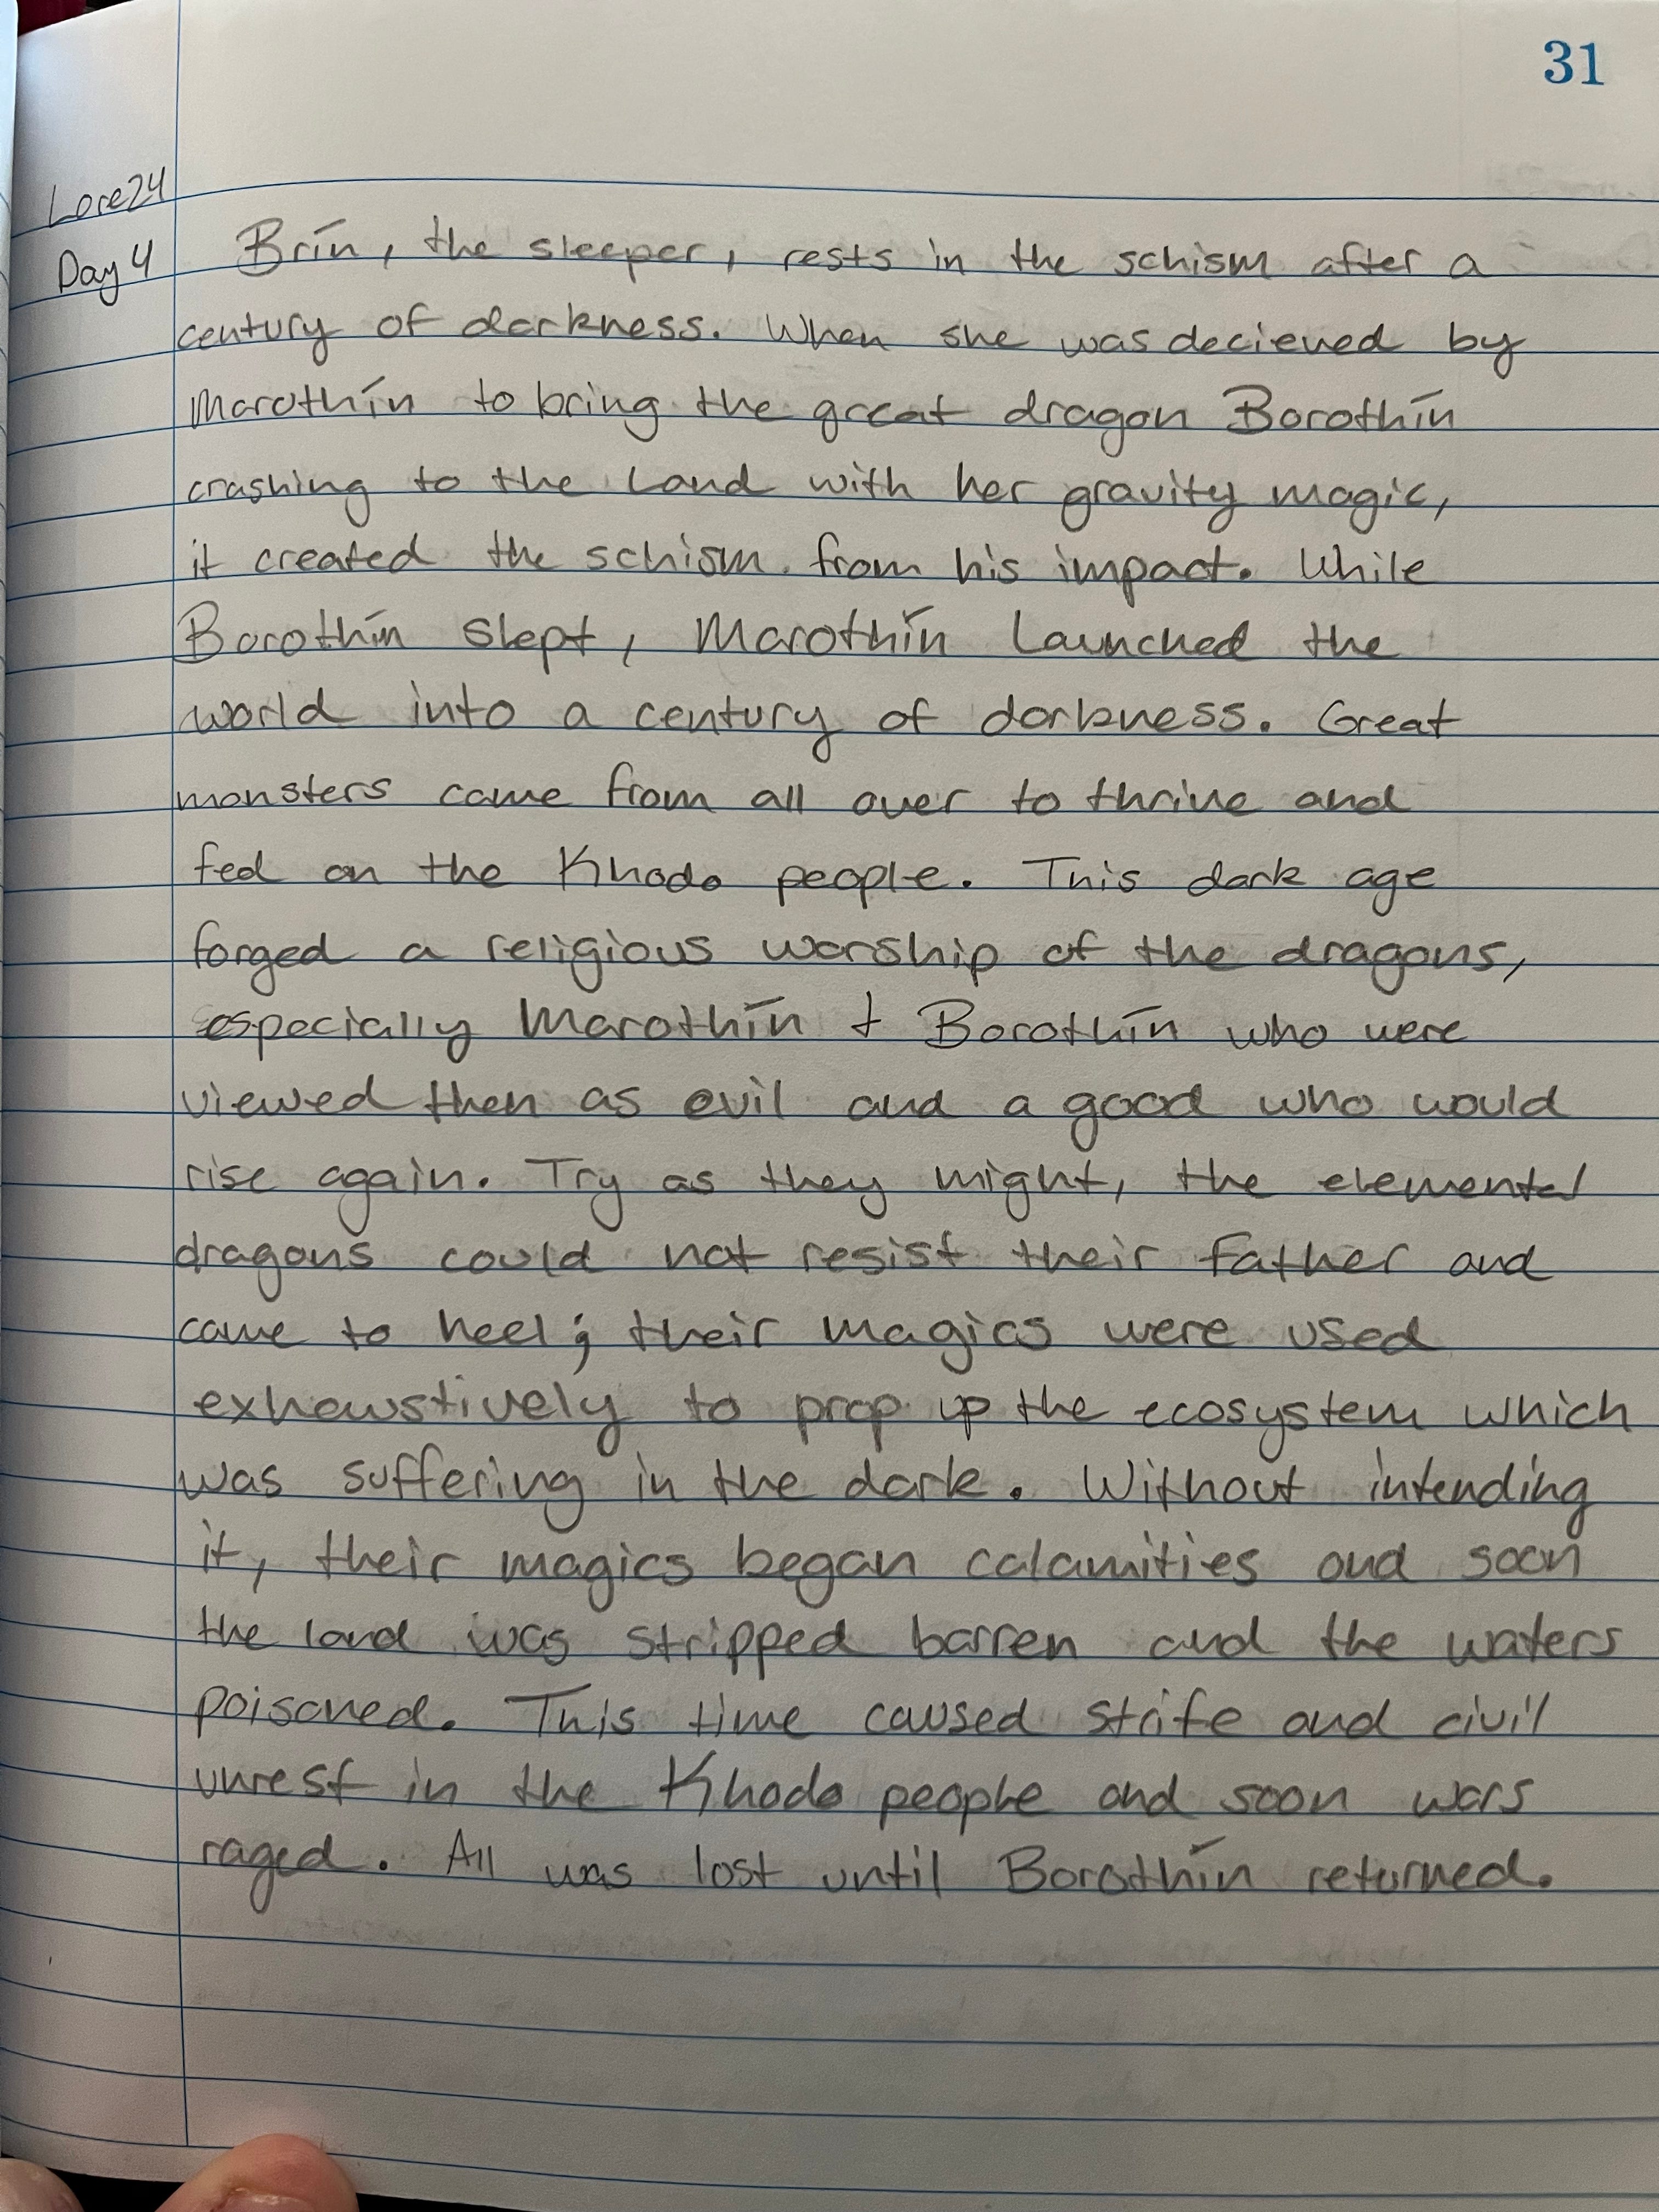 31
Lore24
Day 4
Brīn, the sleeper, rests in the schism after a
century of darkness. When she was decieved by
Marothīn to bring the great dragon Borothīn
crashing to the Land with her gravity magic,
it created the schism from his impact. While
Borothīn slept, Marothīn Launched the
world into a century of darkness. Great
monsters came from all over to thrive and
fed on the Khodo people. This dark age
forged a religious worship of the dragons,
especially Marothīn + Borothīn who were
viewed then as evil and a good who would
rise again. Try as they might, the elemental
dragons could not resist their Father and
came to heel; their magics were used
exhawstively to prop up the ecosystem which
was suffering in the dark. Without intending
it, their magics began calamities and soon
the land was stripped barren and the waters
poisoned. This time caused strife and civil
unrest in the Khodo people and soon wars
raged. All was lost until Borothīn returned.